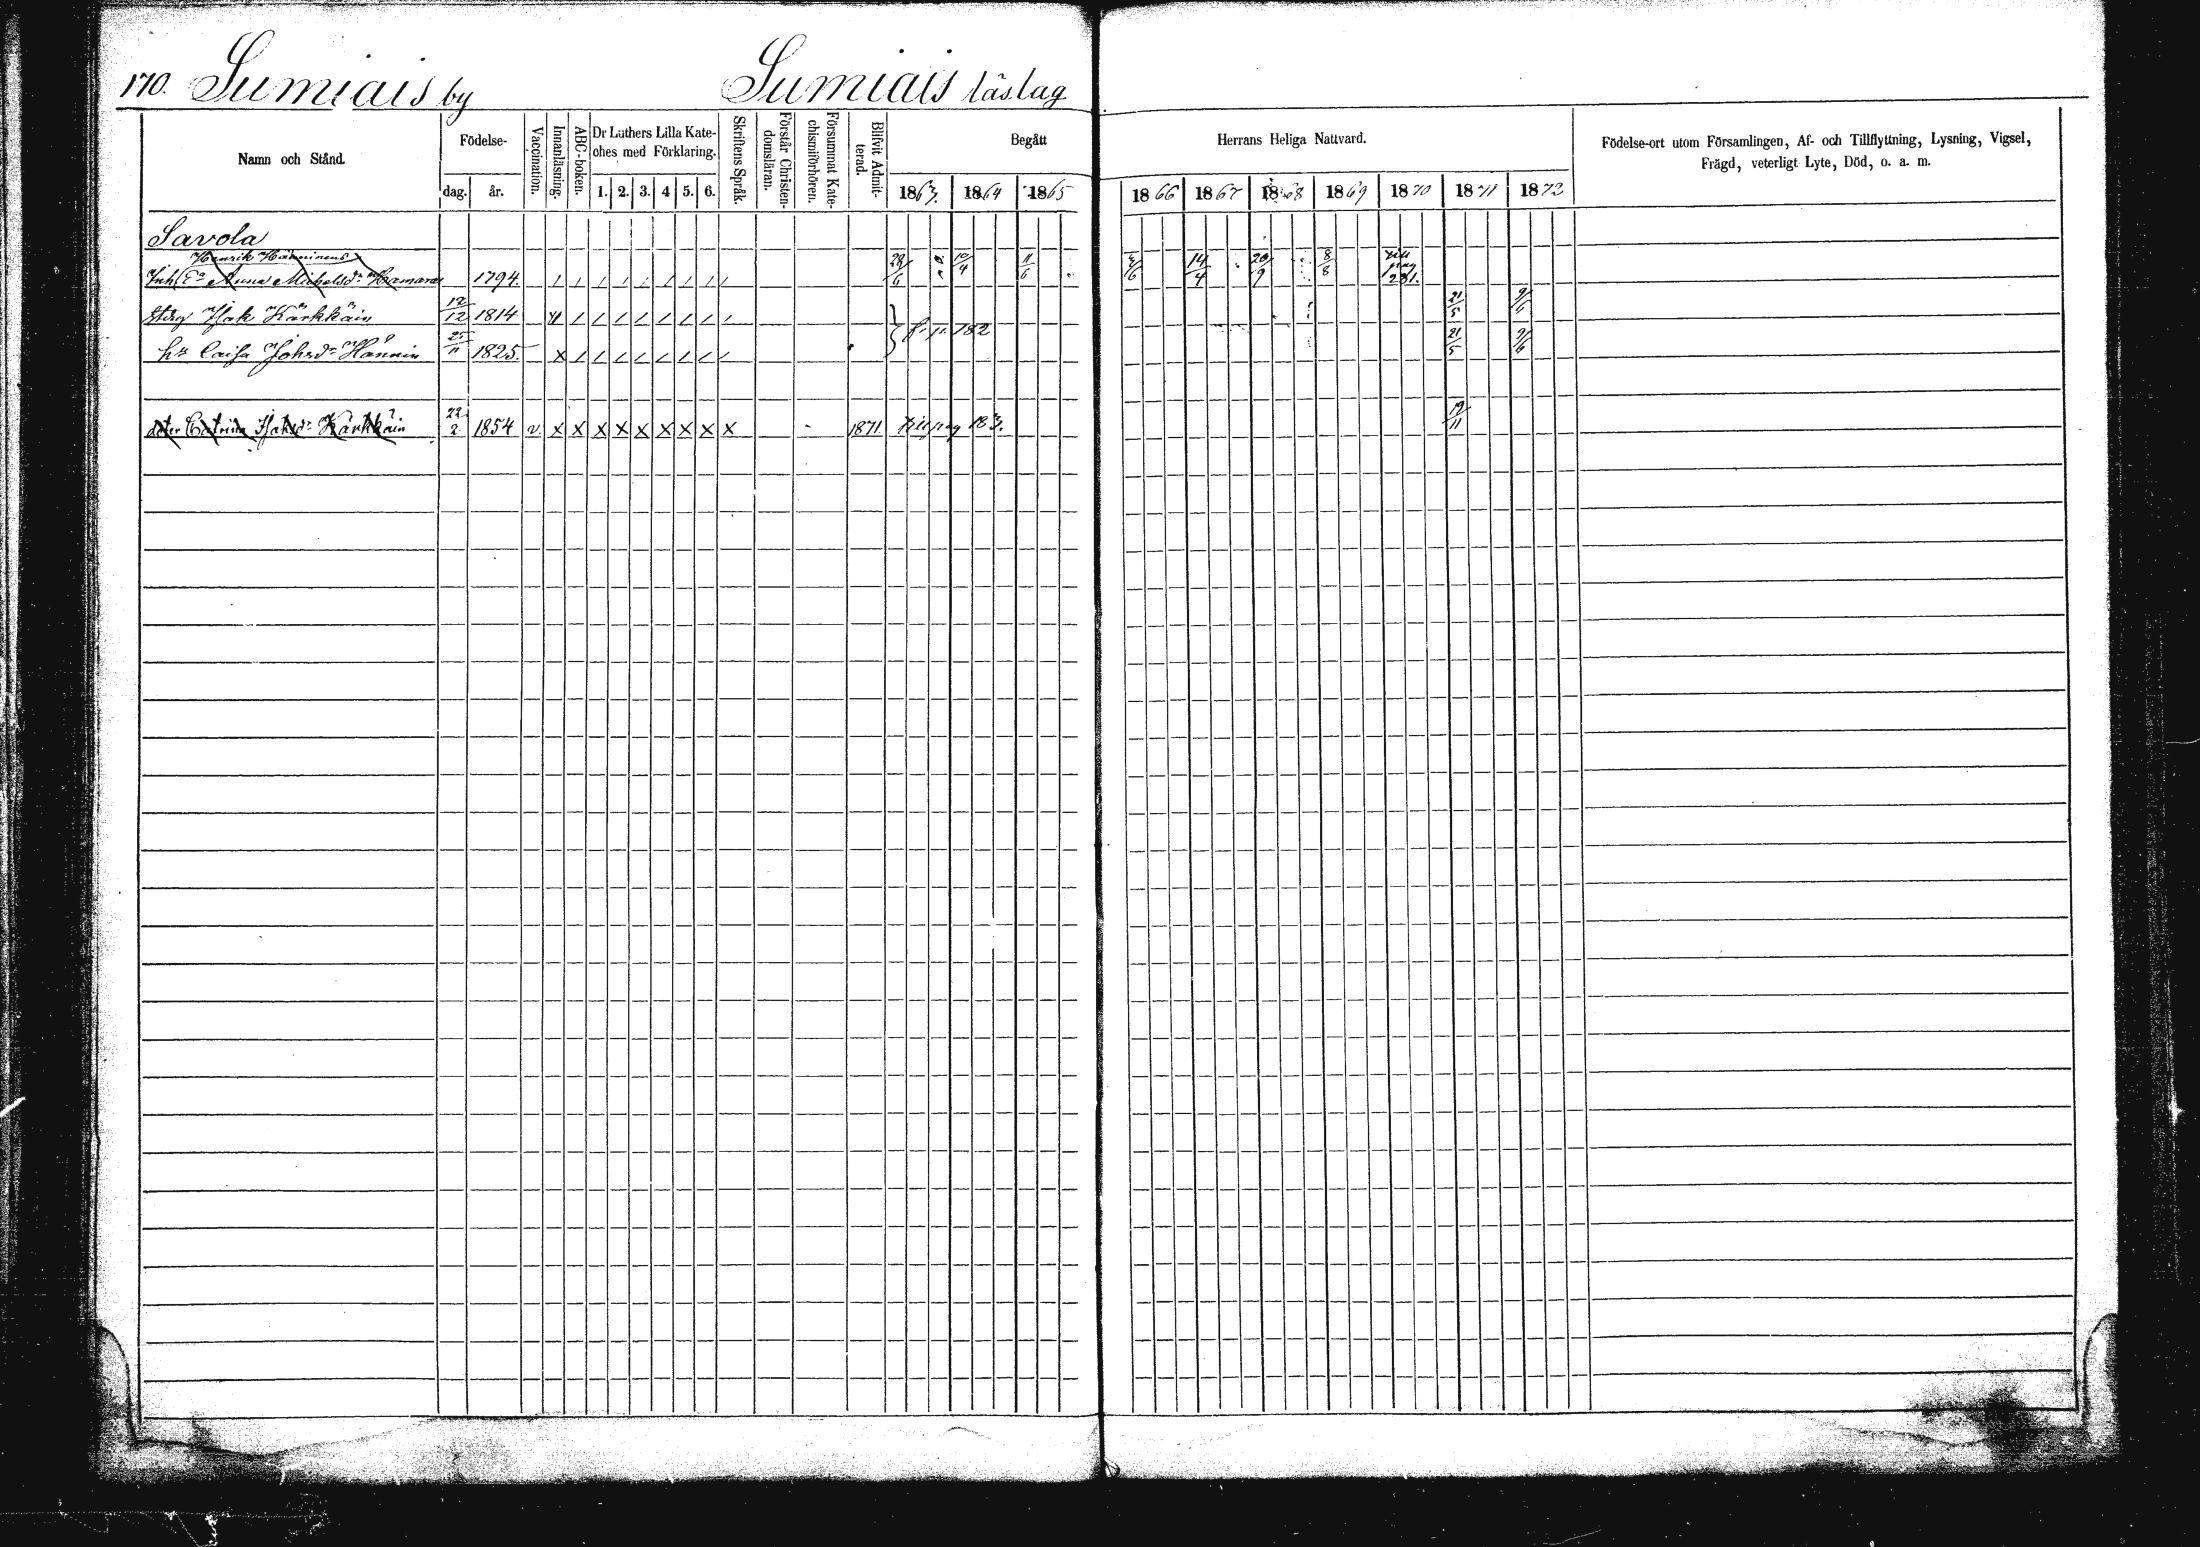 170. Sumiais by Sumiais läslag
Namn och Stånd. Födelse- dag. år. Vaccination. Innanläsning. ABC-boken. Dr Luthers Lilla Kate- ches med Förklaring. 1. 2. 3. 4 5. 6. Skriftens Språk. Förstår Christen- domsläran. Försummat Kate- chismiförhören. Blifvit Admit- terad. Begått 1863. 1864 1865
Herrans Heliga Nattvard. 1866 1867 1868 1869 1870 1871 1872 Födelse-ort utom Församlingen, Af- och Tillflyttning, Lysning, Vigsel, Frägd, veterligt Lyte, Död, o. a. m.
Savola
Henrik Hänninens
Inh. Ea Anna Michelsdr 1794. 28/6 10/4 11/6 14/4 20/9 8/8 till pag 281.
Isak Kärkkäin 12/12 1814 f. p. 182 21/5 9/6
hu Caisa Johsdr Hännin 25/11 1825. 21/5 9/6
doter Catrina Isaksdr Kärkkäin 22/2 1854 v x x x x x x x x x 1871 till pag 183. 19/11